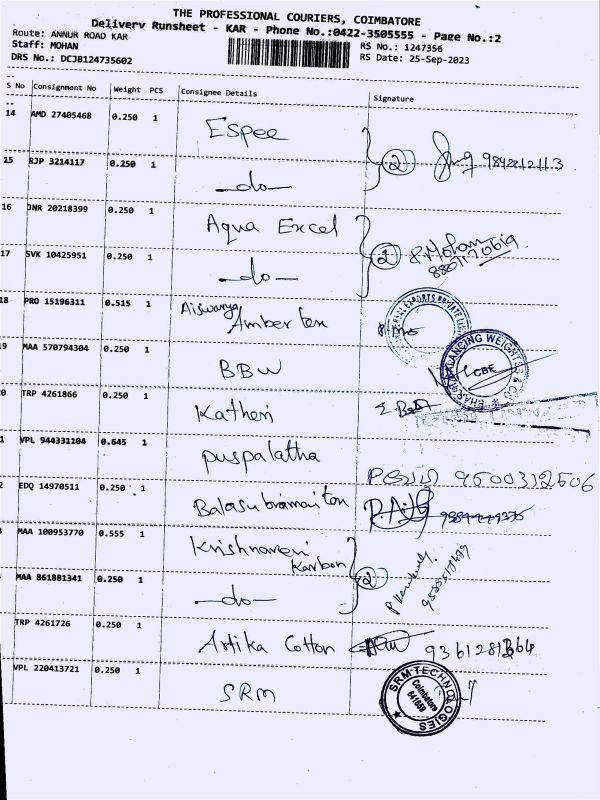 THE PROFESSIONAL COURIERS, COIMBATORE
Delivery Runsheet - KAR - Phone No.:0422-3505555 - Page No.:2
Route: ANNUR ROAD KAR
RS No.: 1247356
Staff: MOHAN
RS Date: 25-Sep-2023
DRS No.: DCJB124735602
S No Consignment No Weight PCS Consignee Details Signature
14 AMD 27405468 0.250 1 Espee 2 9842212113
15 RJP 3214117 0.250 1 —do—
16 JNR 20218399 0.250 1 Aqua Excel 2 P. Mohan
17 SVK 10425951 0.250 1 —do—
18 PRO 15196311 0.515 1 Aiswarya Amber tex
9 MAA 570794304 0.250 1 BBW CBE
0 TRP 4261866 0.250 1 Katheri
1 VPL 944331104 0.645 1 puspalatha 9500312506
2 EDQ 14970511 0.250 1 Balasubramani tex
MAA 100953770 0.555 1 Krishnaveni Karbon 2
MAA 861881341 0.250 1 —do—
TRP 4261726 0.250 1 Artika Cotton
VPL 220413721 0.250 1 SRM SRM TECHNOLOGIES Coimbatore 641659